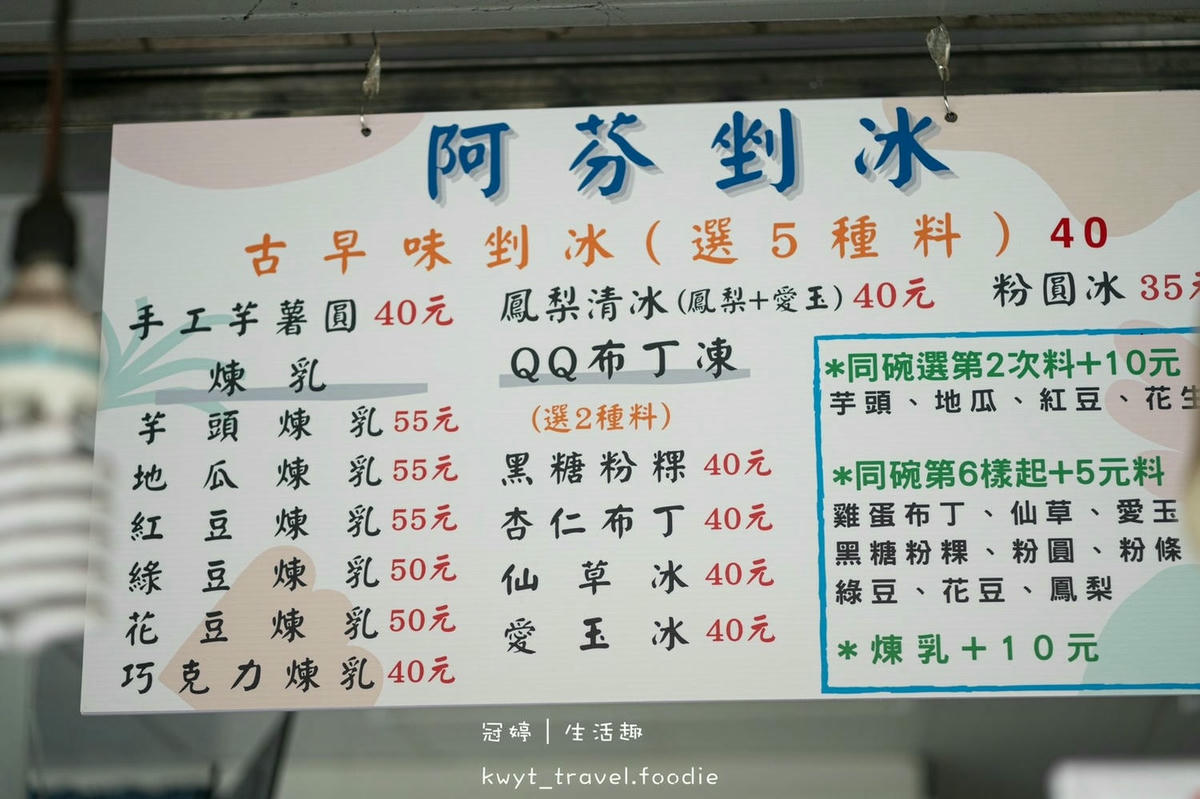 阿芬剉冰
古早味剉冰(選5種料) 40
手工芋薯圓 40元
鳳梨清冰(鳳梨+愛玉) 40元
粉圓冰 35元
煉乳
芋頭煉乳 55元
地瓜煉乳 55元
紅豆煉乳 55元
綠豆煉乳 50元
花豆煉乳 50元
巧克力煉乳 40元
QQ布丁凍
(選2種料)
黑糖粉粿 40元
杏仁布丁 40元
仙草冰 40元
愛玉冰 40元
*同碗選第2次料+10元
芋頭、地瓜、紅豆、花生
*同碗第6樣起+5元料
雞蛋布丁、仙草、愛玉
黑糖粉粿、粉圓、粉條
綠豆、花豆、鳳梨
*煉乳+10元
冠婷|生活趣
kwyt_travel.foodie